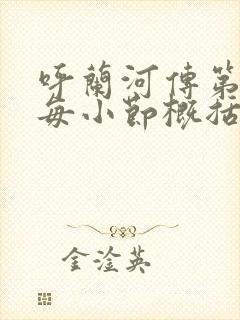 呼蘭河傳第
每小節概括
金淦英